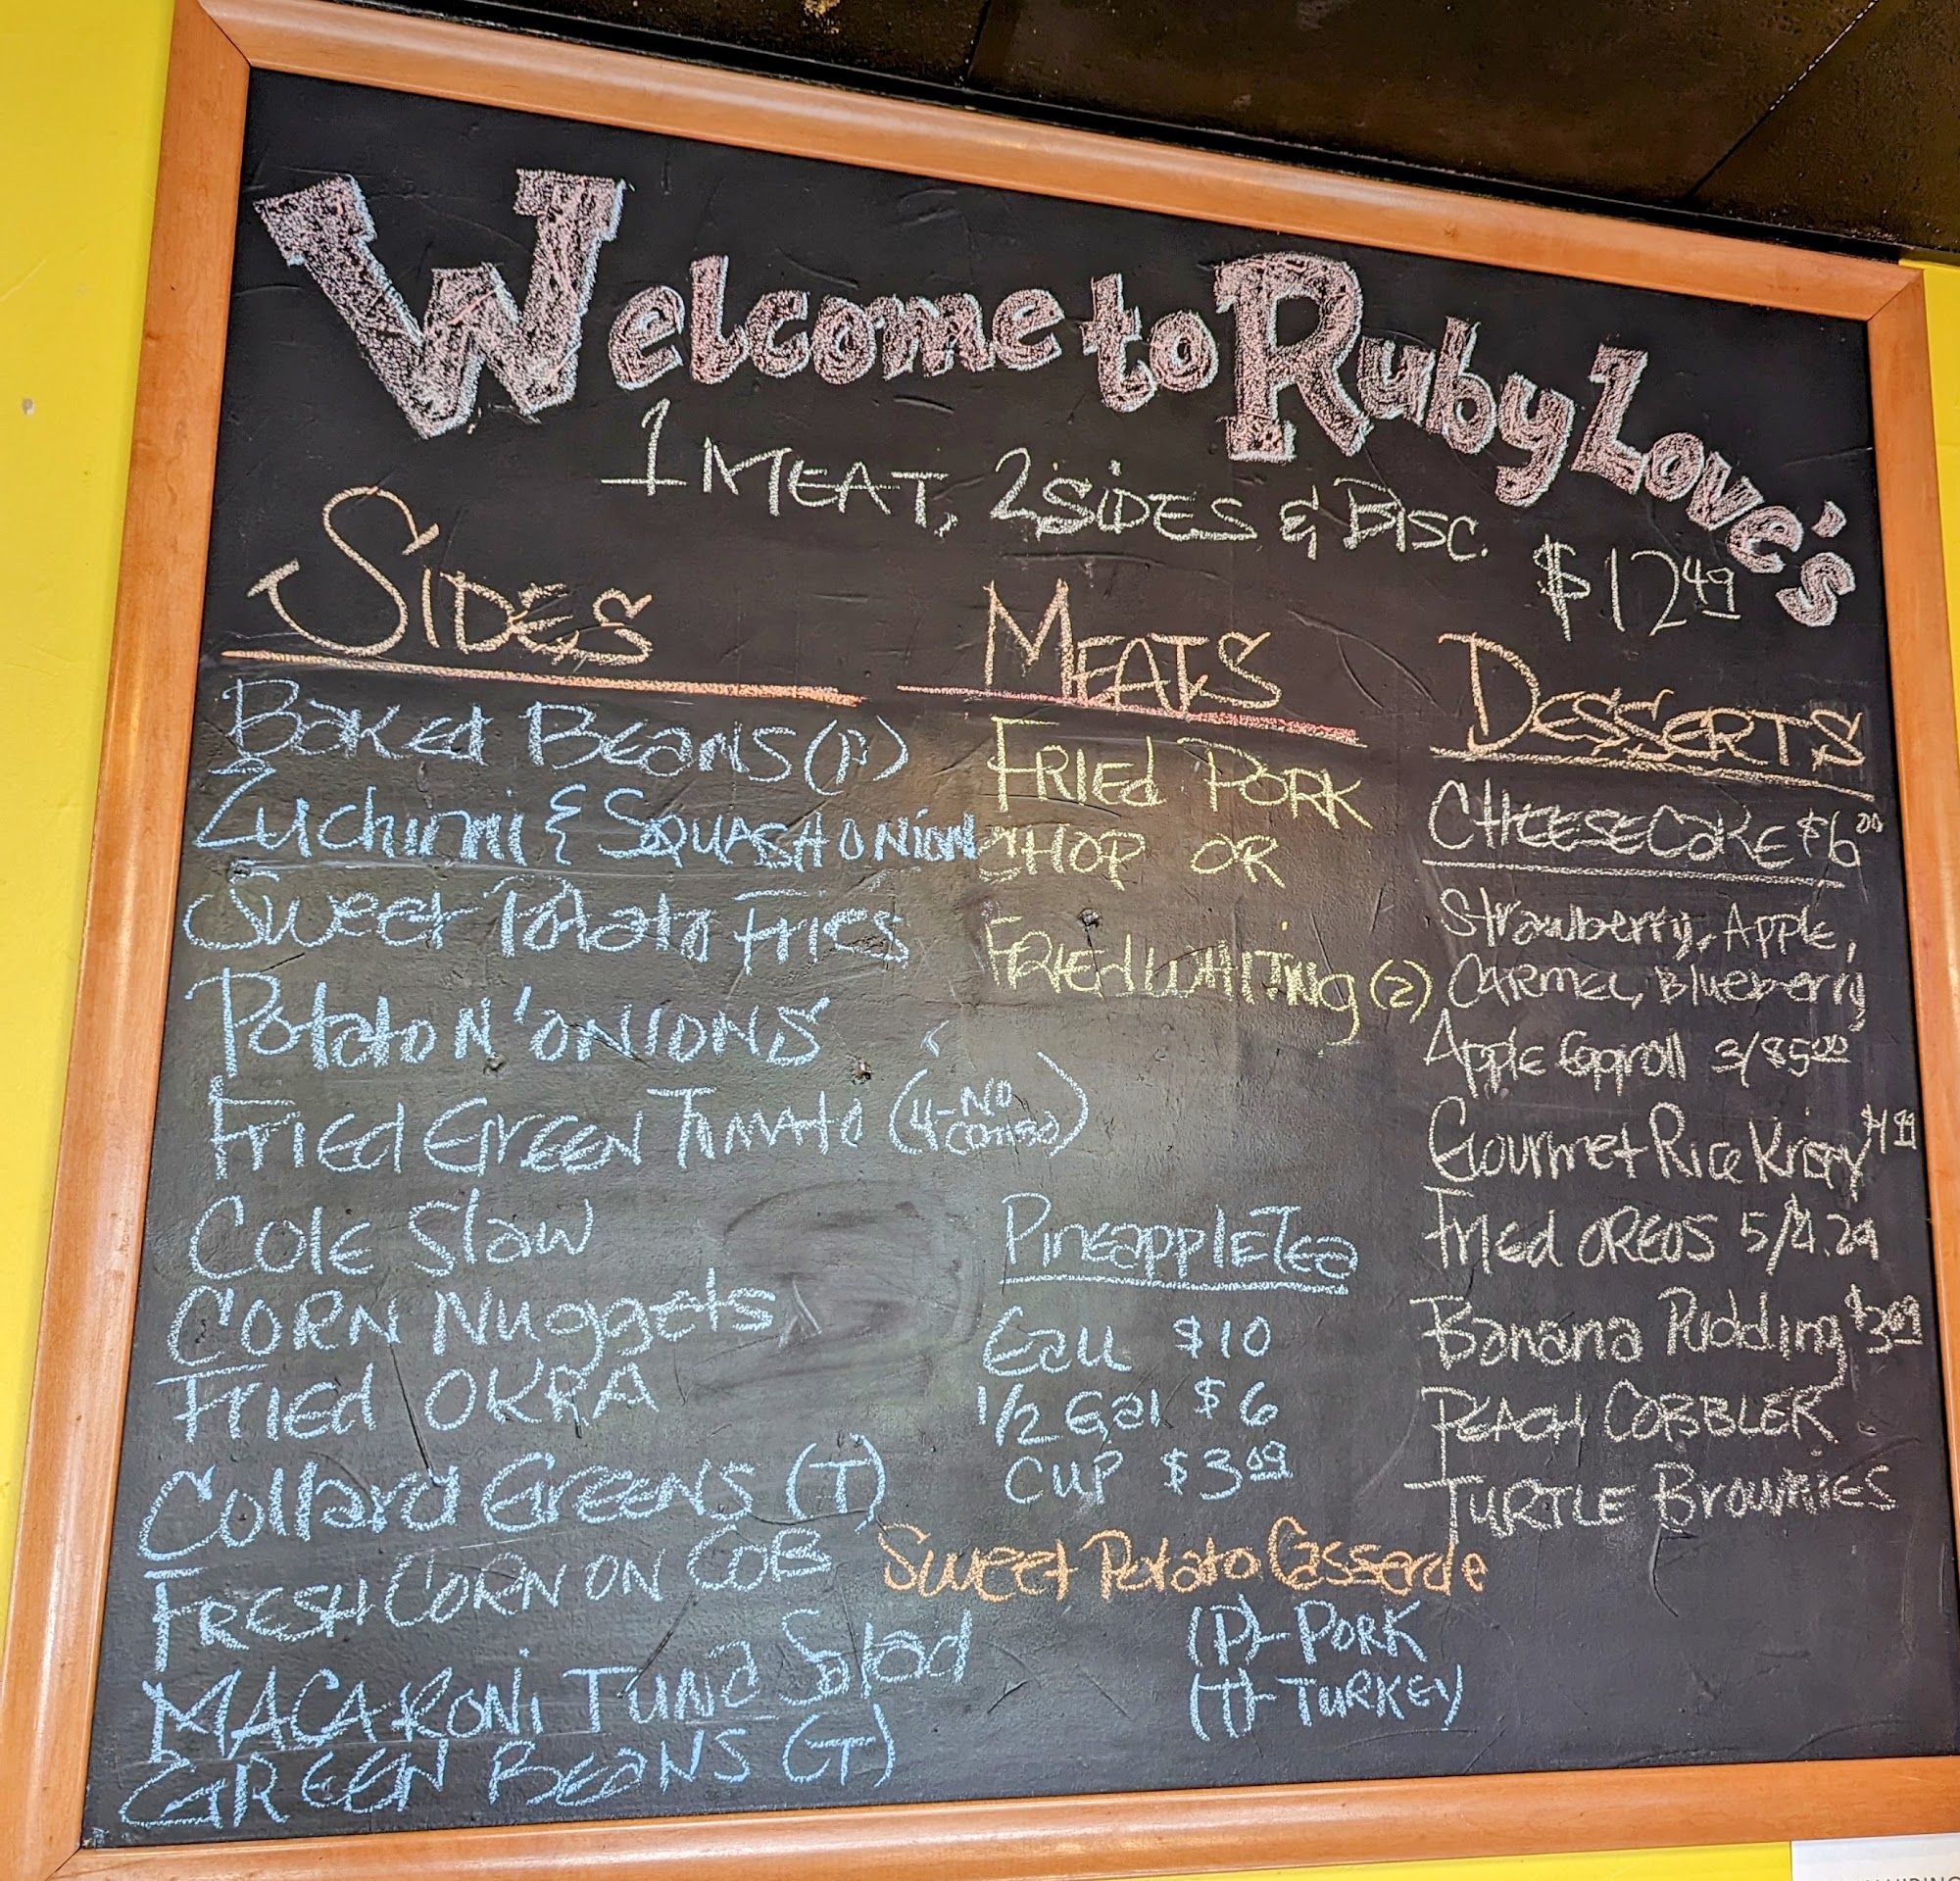 Welcome to Ruby Love's
1 MEAT, 2 SIDES & BISC. $12.49
SIDES
BAKED BEANS (P)
Zuchinni & SQUASH ONION
Sweet Potato Fries
Potato N' ONIONS
Fried GREEN TOMATO (4-NO COMBO)
Cole Slaw
CORN Nuggets
FRIED OKRA
Collard GREENS (T)
FRESH CORN ON COB
MACARONI TUNA Salad
GREEN BEANS (T)
MEATS
FRIED PORK
CHOP OR
FRIED WHITING (2)
PINEAPPLE Tea
Gall $10
1/2 Gal $6
CUP $3.09
Sweet Potato Casserole
(P)- PORK
(T)- TURKEY
DESSERTS
CHEESECAKE $6.00
Strawberry, Apple,
CARMEL, Blueberry
Apple Eggroll 3/$5.00
Gourmet Rice Krispy $4.99
Fried OREOS 5/4.29
Banana Pudding $3.09
PEACH COBBLER
TURTLE Brownies